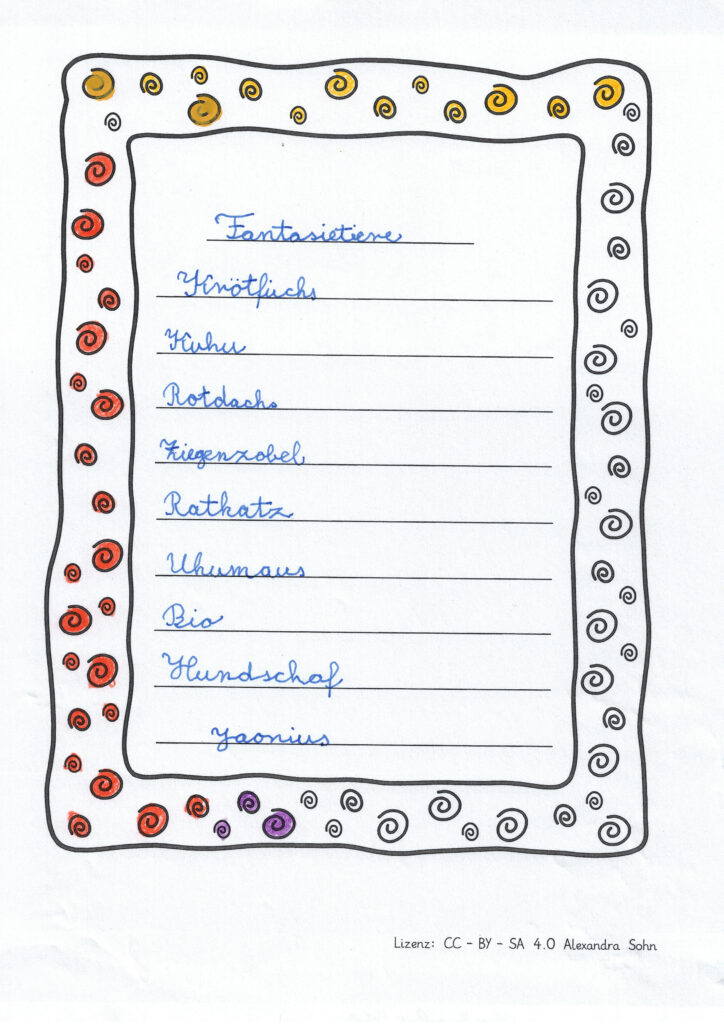 Fantasietiere
Krötfuchs
Kuhu
Rotdachs
Ziegenzobel
Ratkatz
Uhumaus
Bio
Hundschaf
Lizenz: CC - BY - SA 4.0 Alexandra Sohn